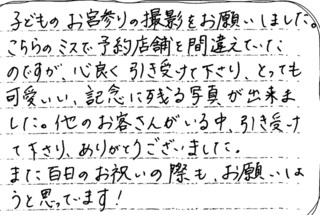 子どものお宮参りの撮影をお願いしました。
こちらのミスで予約店舗を間違えていた
のですが、心良く引き受けて下さり、とっても
可愛いい、記念に残る写真が出来ま
した。他のお客さんがいる中、引き受け
て下さり、ありがとうございました。
また百日のお祝いの際も、お願いしよ
うと思っています!